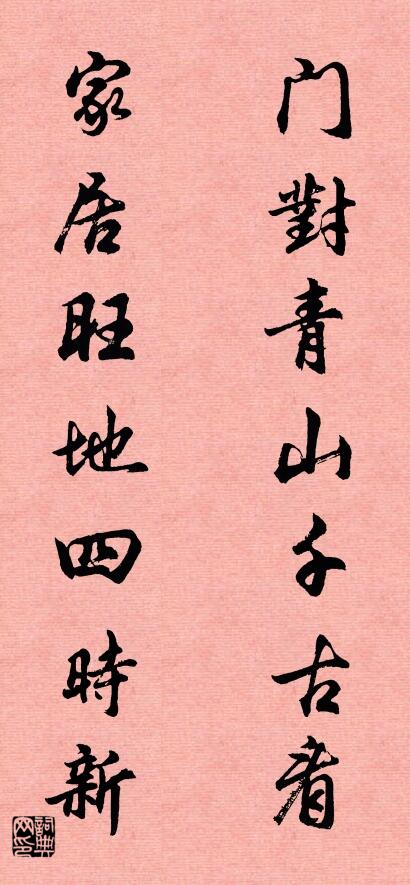 门對青山千古看
家居旺地四時新
詞典
网印